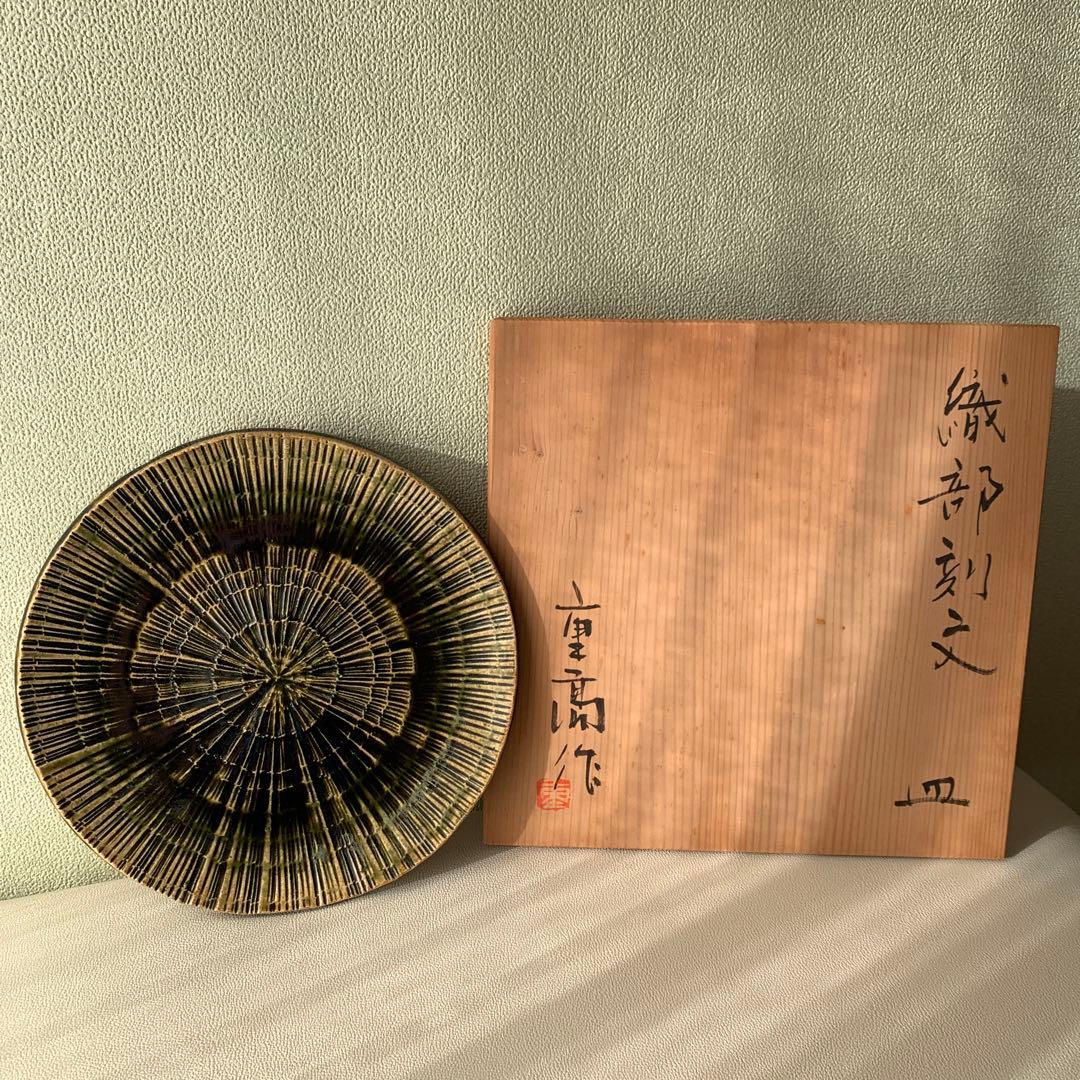 織部刻文 皿
高作